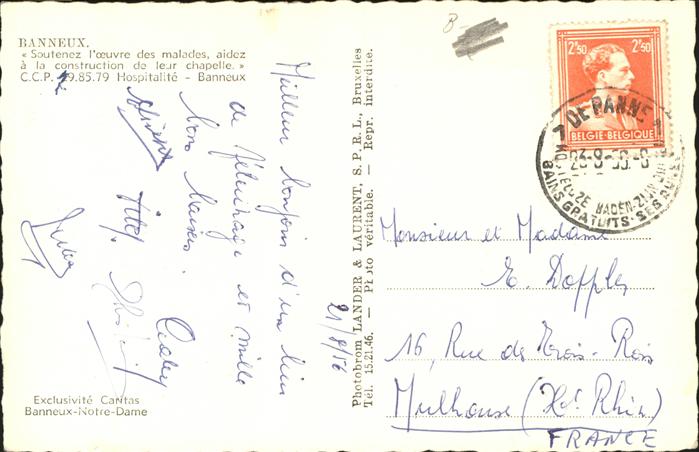 BANNEUX.
« Soutenez l'œuvre des malades, aidez
à la construction de leur chapelle. »
C.C.P. 19.85.79 Hospitalité - Banneux
Meilleur bonjour d'un lieu
de pélerinage et mille
bons baisers.
21/8/56
Exclusivité Caritas
Banneux-Notre-Dame
Photobrom LANDER & LAURENT, S.P.R.L., Bruxelles
Tél. 15.21.46. — Photo véritable. — Repr. Interdite.
B-
2F50 2F50
BELGIE-BELGIQUE
DE PANNE
BAINS GRATUITS
Monsieur et Madame
E. Doppler
16, Rue des Trois-Rois
Mulhouse (Ht Rhin)
FRANCE